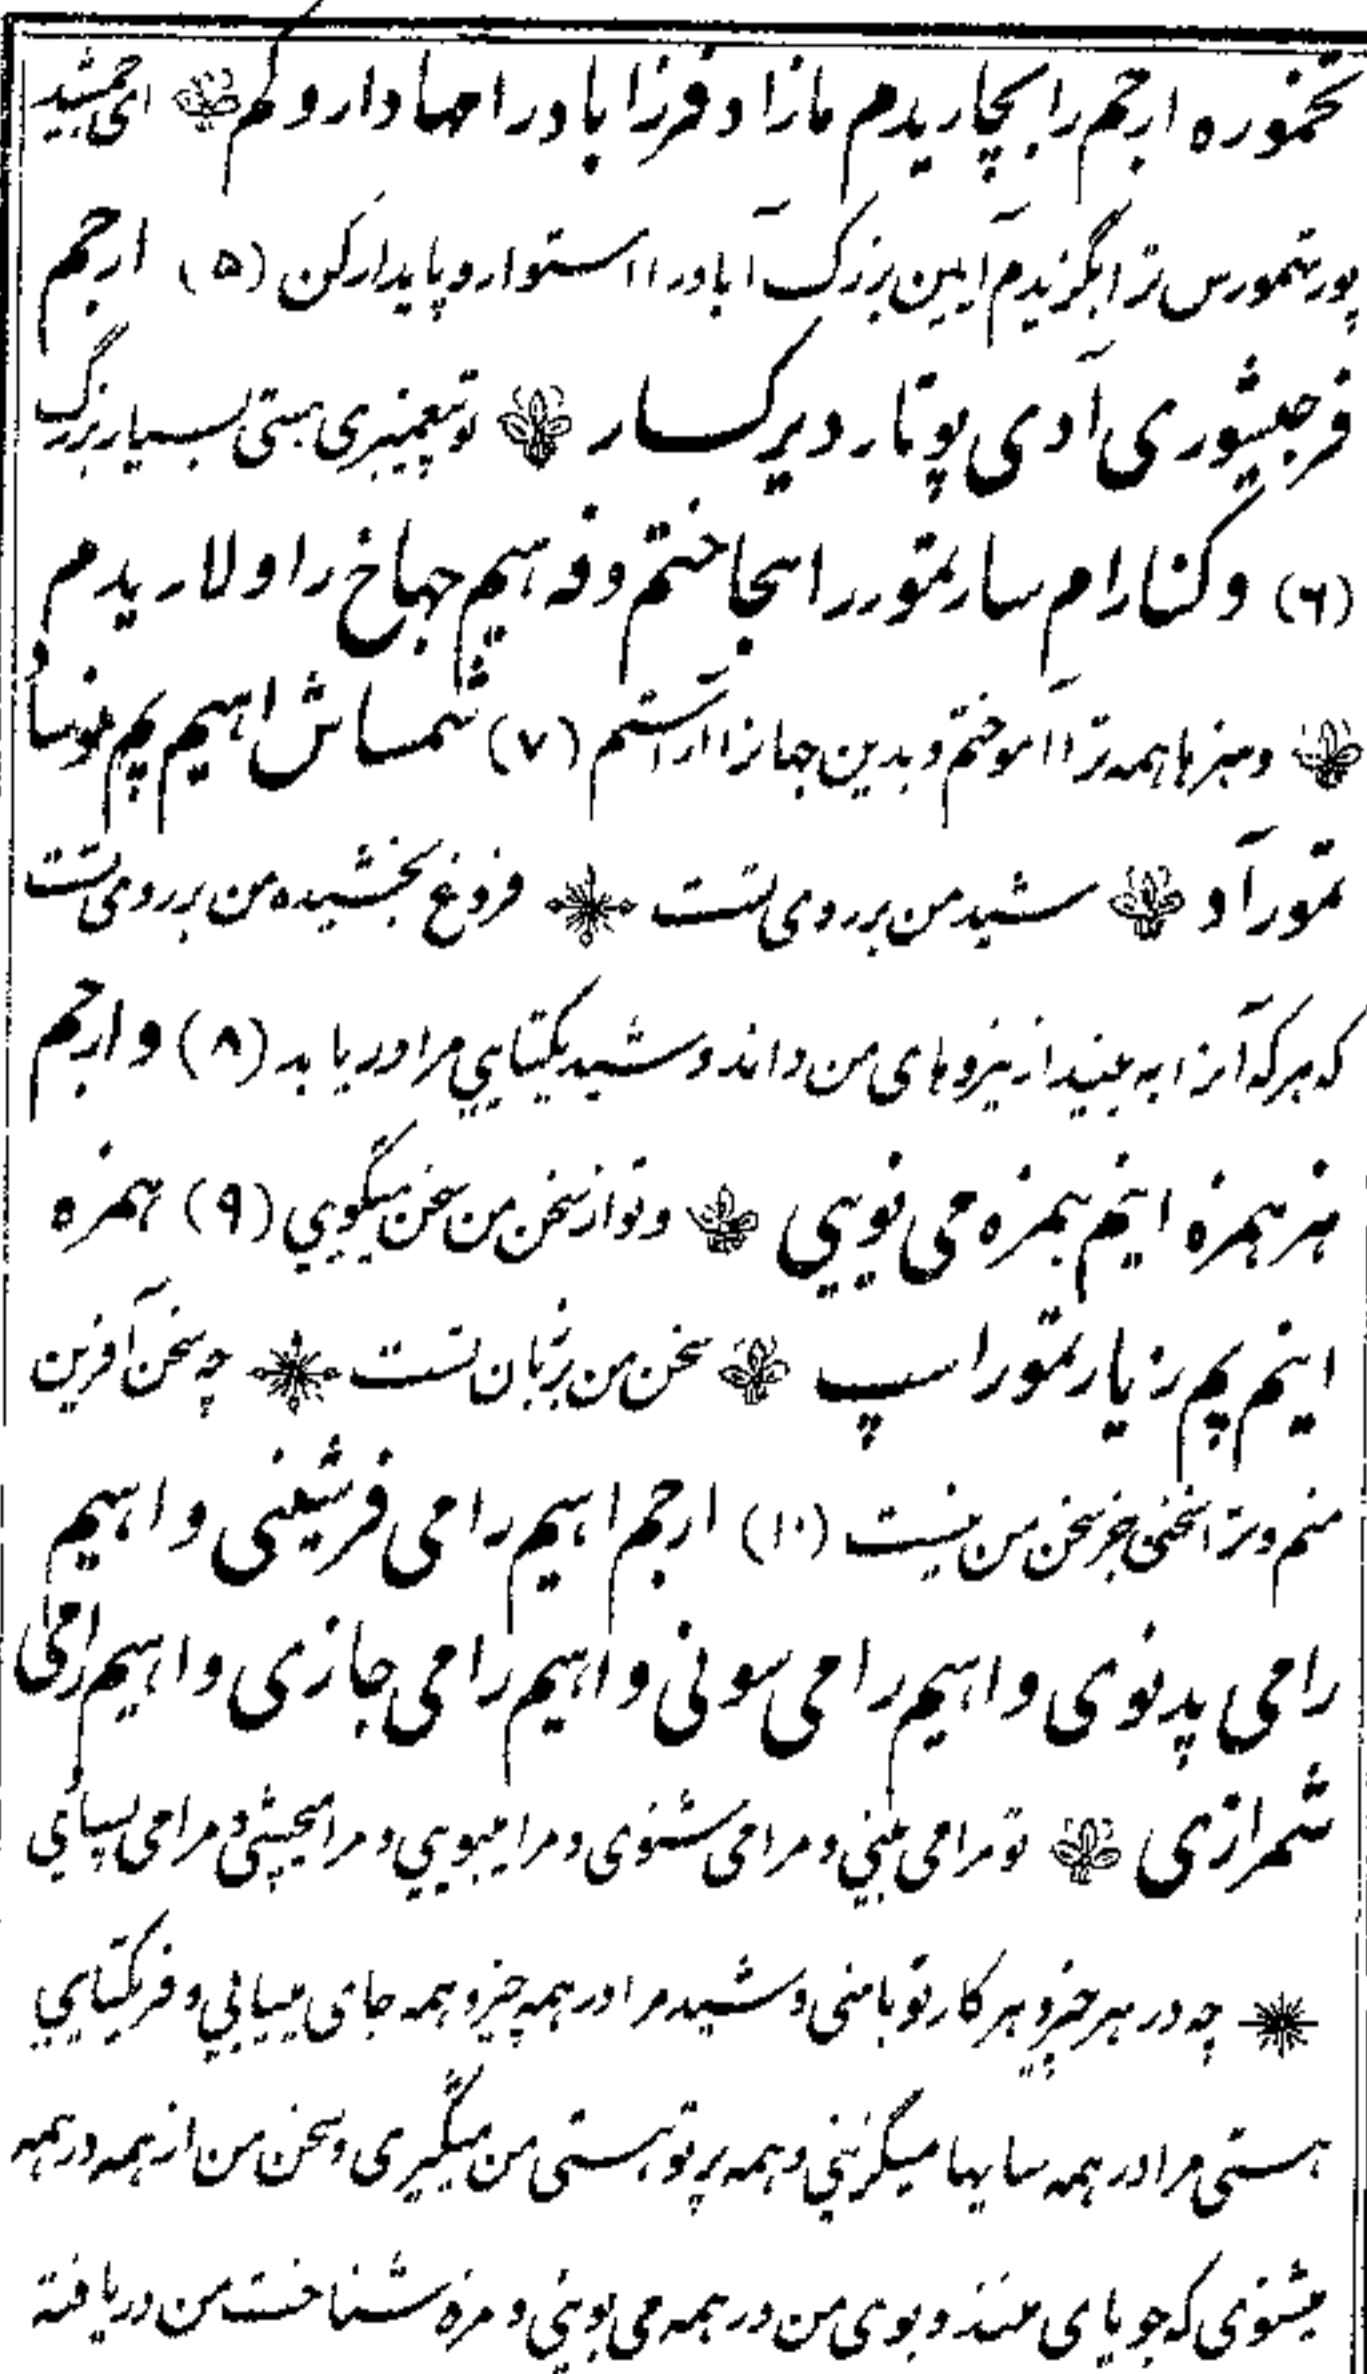 تخموره ارجم را بچاریدم مازا و فرزاباد را امها دار و کم ای جمشید
پور تهمورس ترا بگزیدم آیین بزرگ آباد را استوار و پایدار کن (۵) ارجم
فرجیشوری آدی پوتار دیرکسار تو پیغمبری هستی بسیار بزرگ
(۶) و کنارام سار تمور را بجاختم و فه هیم جهاخ را ولاریدم
و هنرها همه ترا آموختم و بدین جهانرا آراستم (۷) شمساش اهیم پم
تمور آد شید من بر روی تست فروغ بخشیده من بر روی تست
که هر که آنرا به بیند از نیروهای من داند و شید یکتایی مرا دریابد (۸) و ارجم
هز همزه اینم همزه می نویی و تو از سخن من سخن میگویی (۹) همزه
اینم پم زیار تمور اسپ سخن من بر زبان تست چه سخن آفرین
منم و ترا سخنی جز سخن من نیست (۱۰) ارجم اهیم را می فرشینی و اهیم
را می پدنوی و اهیم را می سونی و اهیم را می جازی و اهیم را می
شمرازی تو مرا می بینی و مرا می شنوی و مرا میبویی و مرا میچشی و مرا می بسایی
چه در هر چیز و هر کار تو با منی و شید مرا در همه چیز و همه جای مییابی و فر یکتایی
هستی مرا در همه سایها مینگری و همه پرتو هستی من میگیری و سخن من از همه در همه
میشنوی که جویای منند و بوی من در همه می بویی و مزه شناخت من دریافته